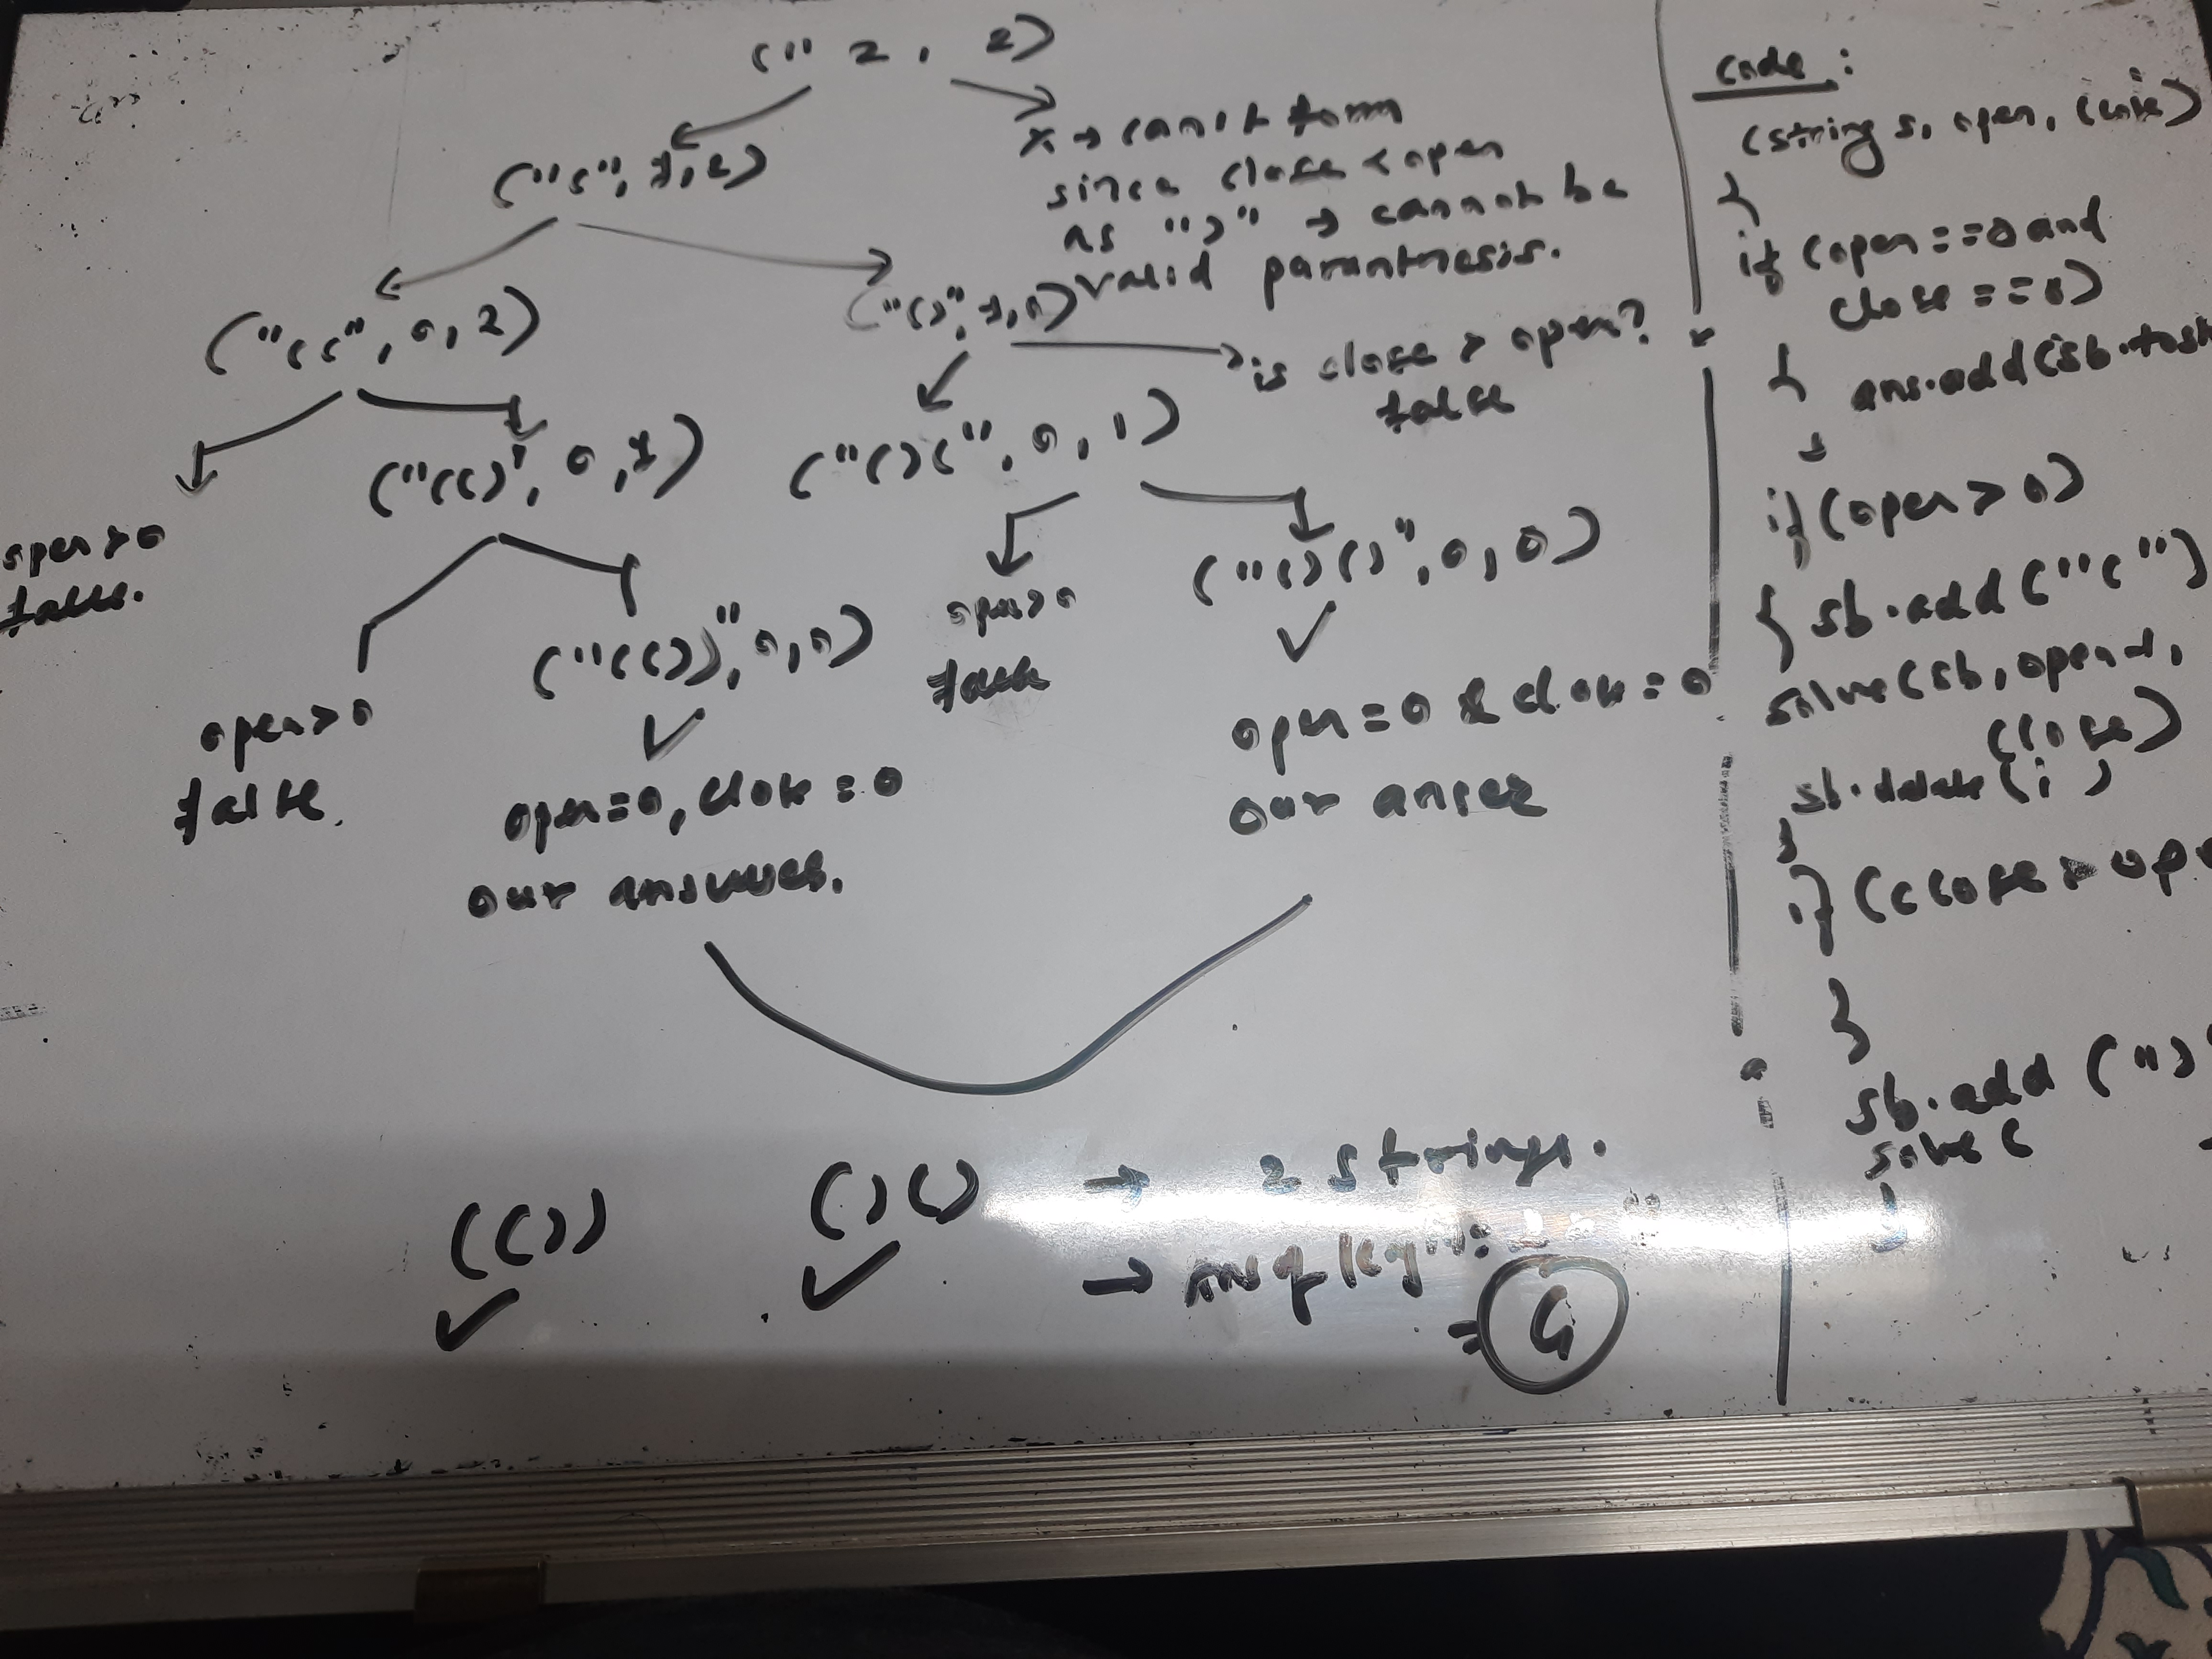 (" 2, 2)
("(", 1,2)
x → cannot form
since close < open
as ")" → cannot be
valid paranthesis.
("((", 0,2)
("()", 1,1)
is close > open?
false
open>0
false.
("(()", 0,1)
("()(", 0,1)
open>0
false.
("(())", 0,0)
✓
open=0, close=0
our answer.
open>0
false
("()()", 0,0)
✓
open=0 & close=0
our anser
(())
✓
()()
✓
→ 2 strings.
→
=
code:
(string s, open, close)
{
if (open==0 and
close==0)
{ ans.add(sb.tost
}
if (open > 0)
{ sb.add("(")
solve(sb, open-1,
close)
sb.delete(i)
}
if (close > ope
}
sb.add (")
solve(
}